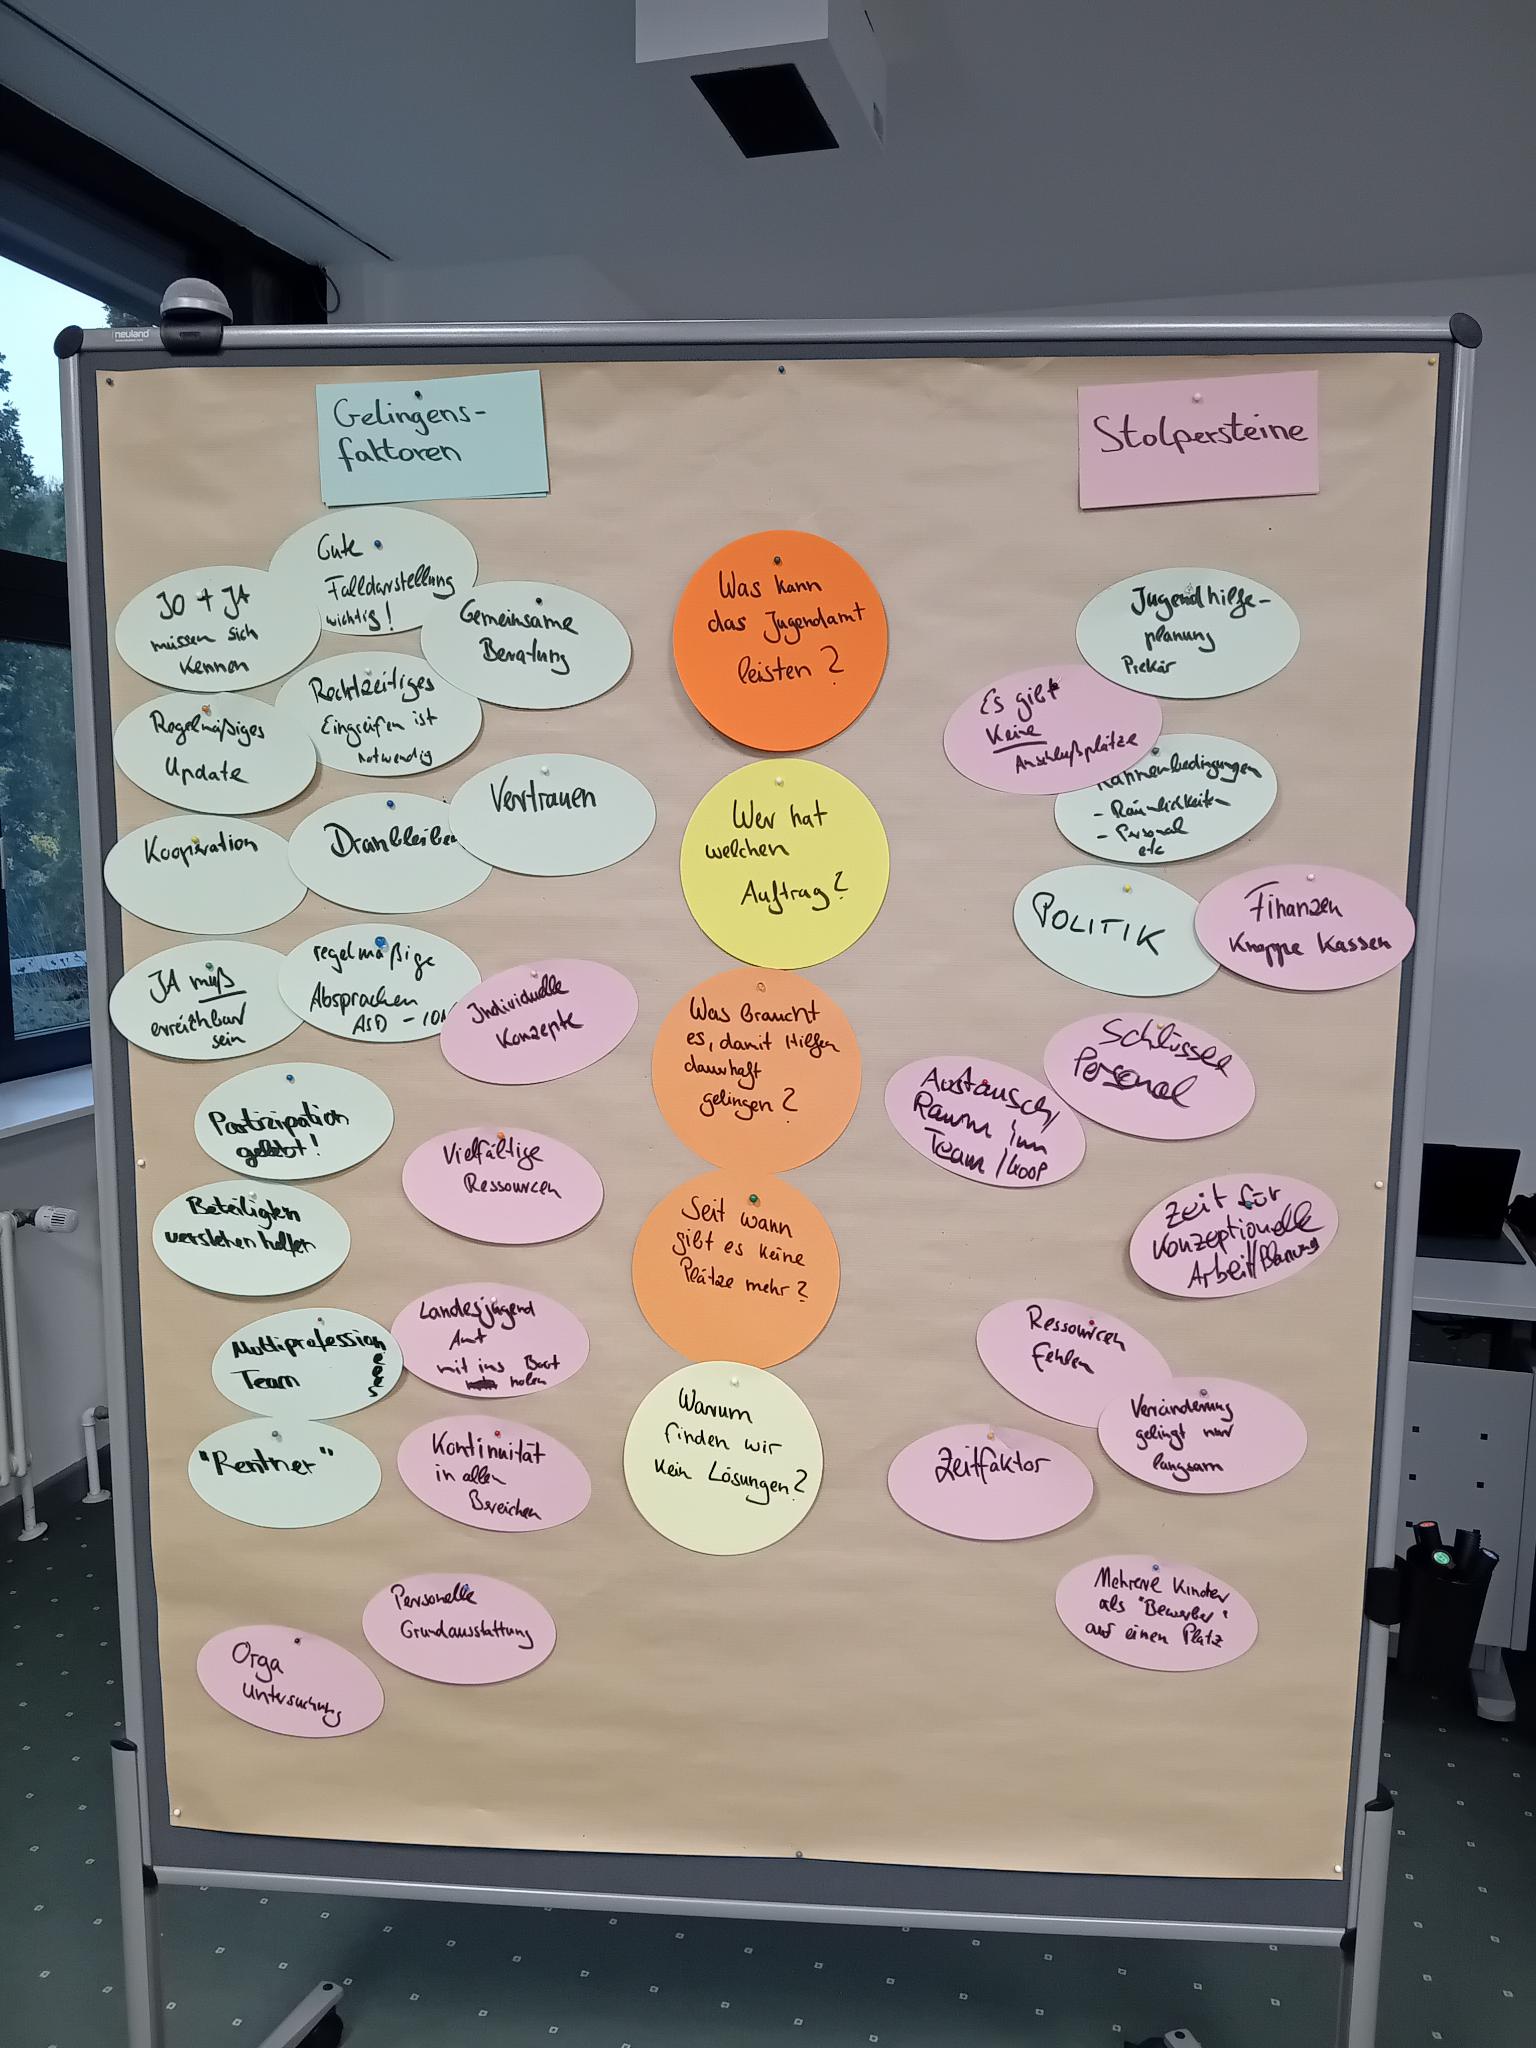 neuland
Gelingens-
faktoren
Stolpersteine
Gute
Falldarstellung
wichtig!
JO + JA
müssen sich
kennen
Gemeinsame
Beratung
Rechtzeitiges
Eingreifen ist
notwendig
Regelmäßiges
Update
Vertrauen
Kooperation
Dranbleiben
JA muß
erreichbar
sein
regelmäßige
Absprachen
ASD -
Individuelle
Konzepte
Partizipation
gelebt!
Vielfältige
Ressourcen
Beteiligten
verstehen helfen
Landesjugend
Amt
mit ins Boot
holen
Multiprofession
elles
Team
"Rentner"
Kontinuität
in allen
Bereichen
Personelle
Grundausstattung
Orga
Untersuchung
Was kann
das Jugendamt
leisten?
Wer hat
welchen
Auftrag?
Was braucht
es, damit Hilfen
dauerhaft
gelingen?
Seit wann
gibt es keine
Plätze mehr?
Warum
finden wir
kein Lösungen?
Jugendhilfe-
planung
Prekär
Es gibt
keine
Anschlußplätze
Rahmenbedingungen
- Räumlichkeiten
- Personal
etc
POLITIK
Finanzen
Knappe Kassen
Schlüssel
Personal
Austausch/
Raum im
Team/Koop
Zeit für
Konzeptionelle
Arbeit/Planung
Ressourcen
fehlen
Veränderung
gelingt nur
langsam
Zeitfaktor
Mehrere Kinder
als "Bewerber"
auf einen Platz